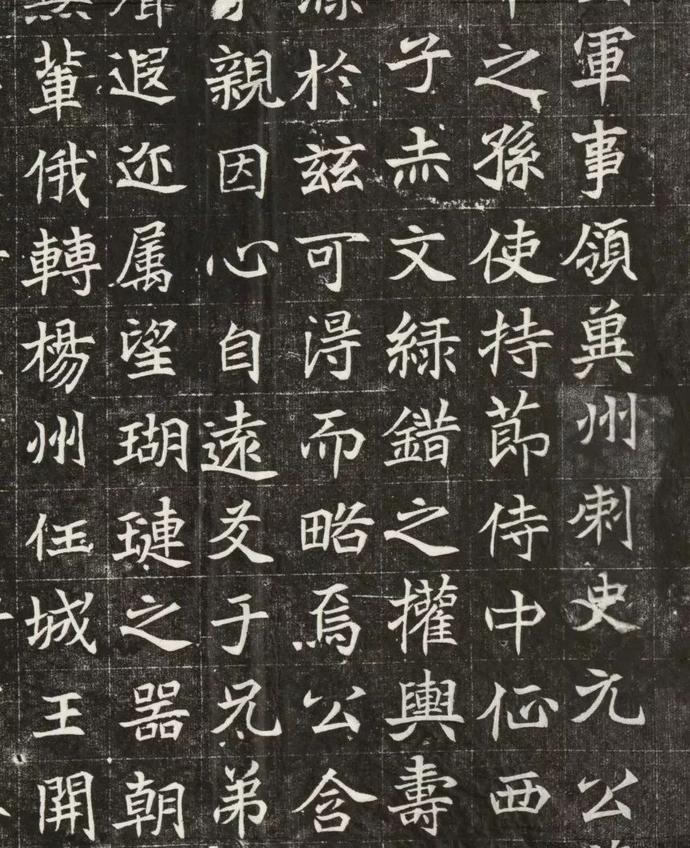 軍事領兾州刺史元公
之孫使持莭侍中征西
子赤文緑錯之權輿壽
於兹可得而略焉公含
親因心自遠友于兄弟
遐迩属望瑚璉之器朝
輩俄轉楊州任城王開